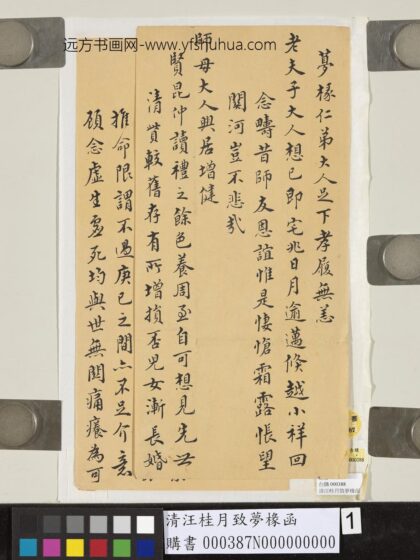 远方书画网-www.yfshuhua.com
夢椽仁弟大人足下孝履無恙
老夫子大人想已即宅兆日月逾邁倏越小祥回
念疇昔師友恩誼惟是悽愴霜露悵望
關河豈不悲哉
師母大人興居增健
賢昆仲讀禮之餘色養周至自可想見先
清貲較舊存有所增損否兒女漸長婚
推命限謂不過庚巳之間亦不足介意
顧念虛生虛死均與世無關痛癢為可
000388
清汪桂月致夢椽函
清汪桂月致夢椽函
購書 000387N000000000
1